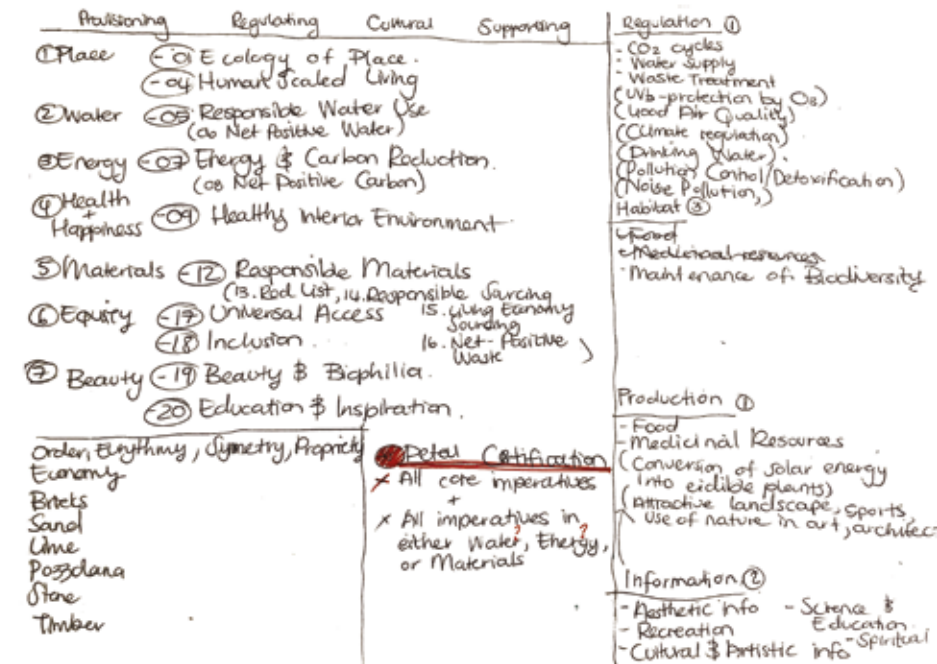 Provisioning Regulating Cultural Supporting
① Place -01 Ecology of Place.
-04 Human Scaled Living
② Water -05 Responsible Water Use
(06 Net Positive Water)
③ Energy -07 Energy & Carbon Reduction.
(08 Net Positive Carbon)
④ Health
+
Happiness -09 Healthy Interior Environment
5 Materials -12 Responsible Materials
(13. Red List, 14. Responsible Sourcing
15. Living Economy
Sourcing
16. Net-Positive
Waste )
⑥ Equity -17 Universal Access
-18 Inclusion.
⑦ Beauty -19 Beauty & Biophilia.
-20 Education & Inspiration.
Order, Eurythmy, Symetry, Propriety
Economy
Bricks
Sand
Lime
Pozzolana
Stone
Timber
Petal Certification
x All core imperatives
+
x All imperatives in
either Water?, Energy?,
or Materials
Regulation ①
- CO2 cycles
- Water Supply
- Waste Treatment
(UVb-protection by O3)
(Good Air Quality)
(Climate regulation)
(Drinking Water).
(Pollution Control/Detoxification)
(Noise Pollution,)
Habitat ③
- Food
- Medicinal resources
- Maintenance of Biodiversity
Production ①
- Food
- Medicinal Resources
(Conversion of solar energy
into eidible plants)
(Attractive landscape, sports,
use of nature in art, architec
Information ②
- Aesthetic info - Science &
Education
- Recreation
- Cultural & Artistic info - Spiritual